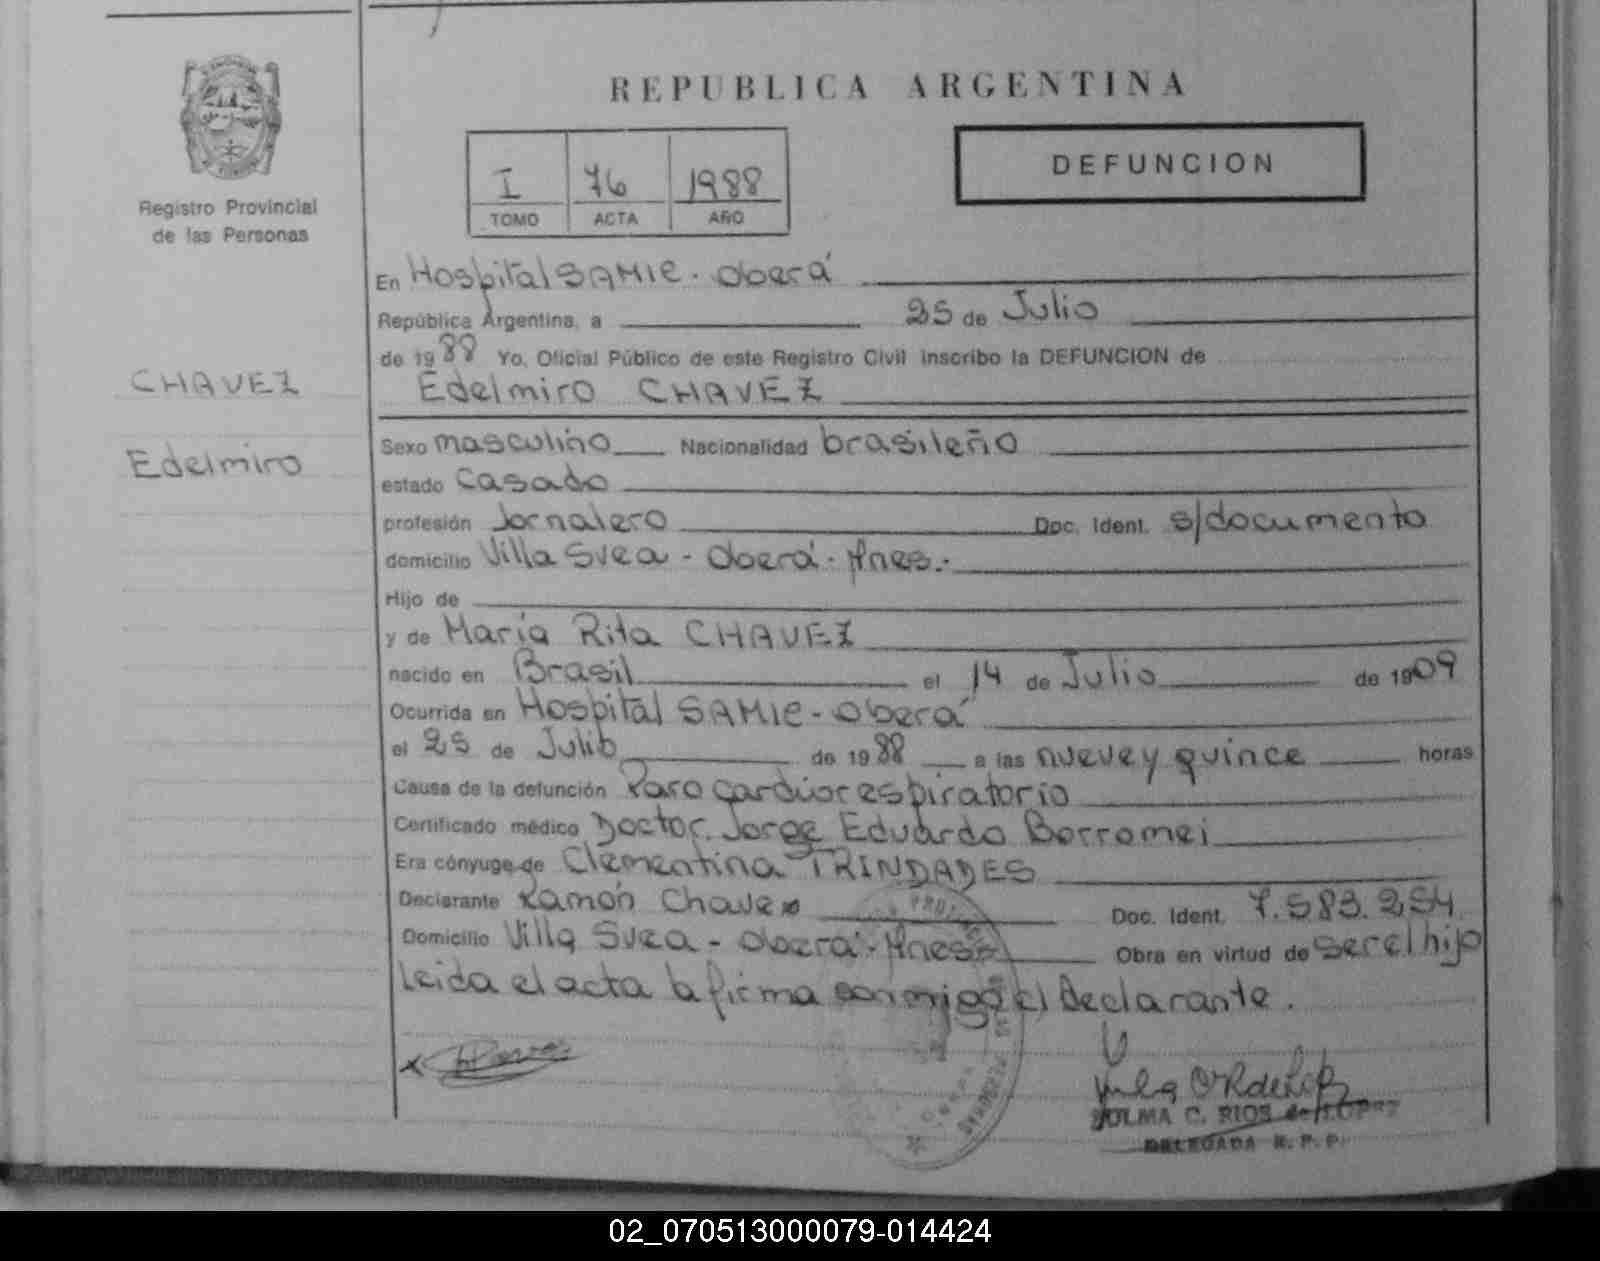 REPUBLICA ARGENTINA
I 76 1988
TOMO ACTA AÑO
DEFUNCION
Registro Provincial
de las Personas
CHAVEZ
Edelmiro
En Hospital SAMIC - Oberá
República Argentina, a 25 de Julio
de 1988 Yo, Oficial Público de este Registro Civil inscribo la DEFUNCION de
Edelmiro CHAVEZ
Sexo masculino Nacionalidad brasileño
estado Casado
profesión Jornalero Doc. Ident. s/documento
domicilio Villa Svea - Oberá - Mnes.-
Hijo de
y de María Rita CHAVEZ
nacido en Brasil el 14 de Julio de 1909
Ocurrida en Hospital SAMIC - Oberá
el 25 de Julio de 1988 a las nueve y quince horas
Causa de la defunción Paro cardiorespiratorio
Certificado médico Doctor Jorge Eduardo Borromei
Era cónyuge de Clementina TRINDADES
Declarante Ramón Chavez Doc. Ident. 7.583.254
Domicilio Villa Svea - Oberá - Mnes Obra en virtud de ser el hijo
Leida el acta la firma conmigo el declarante.
ZULMA C. RIOS de LOPEZ
DELEGADA R. P. P.
02_070513000079-014424